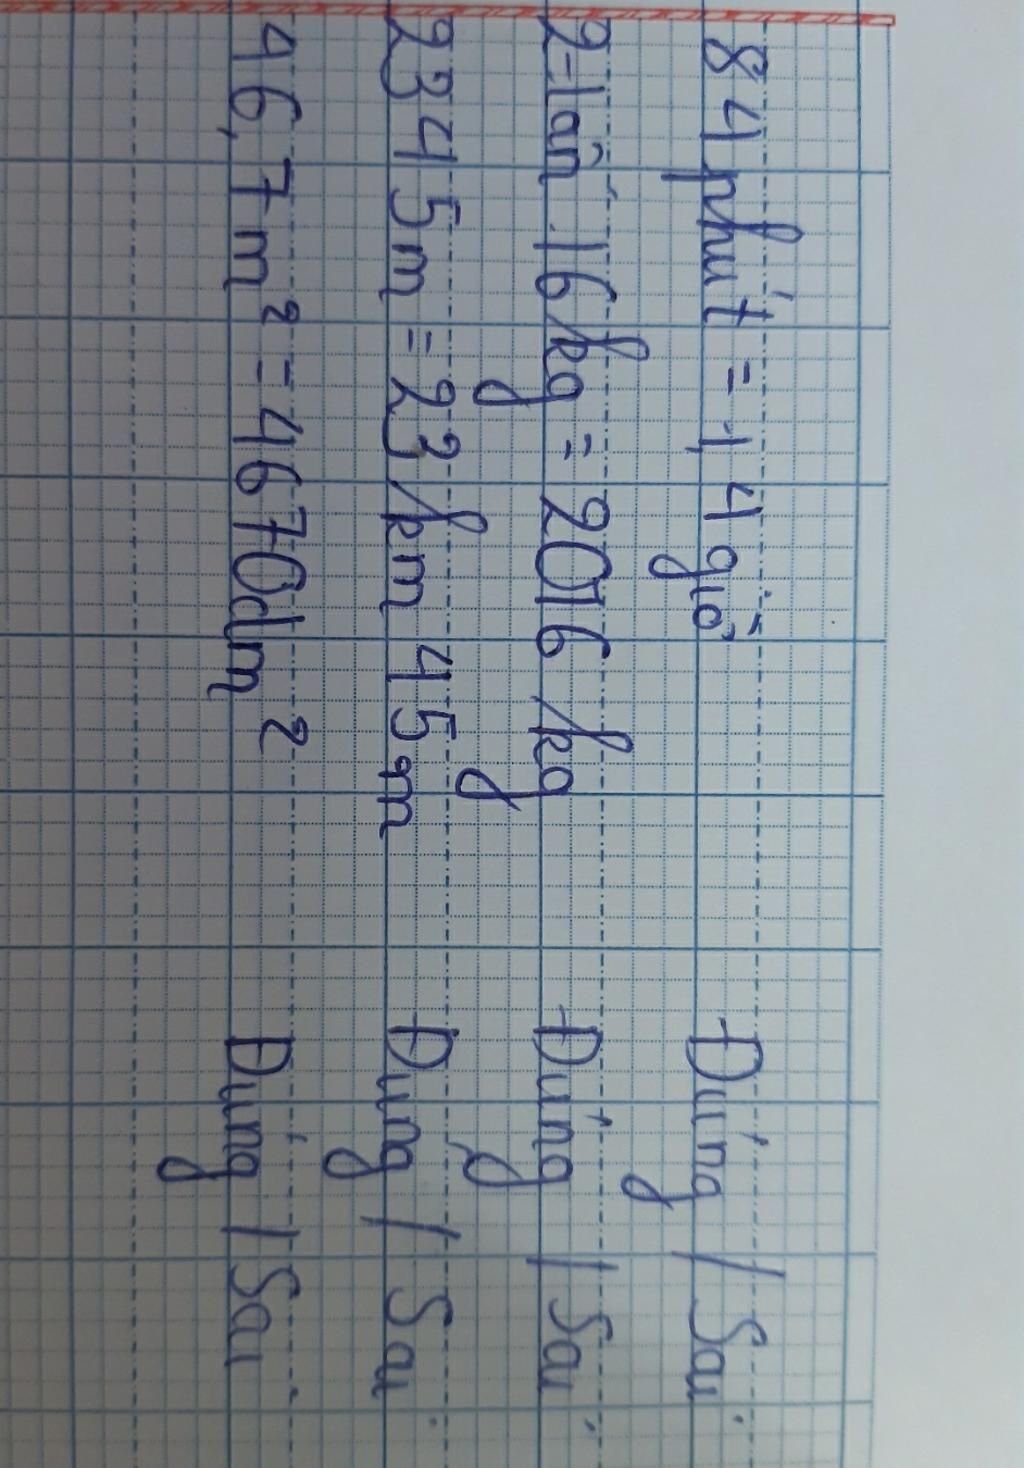 84 phút = 1,4 giờ Đúng / Sai
2 tấn 16 kg = 2016 kg Đúng / Sai
2345m = 23 km 45m Đúng / Sai
46,7m² = 4670dm² Đúng / Sai